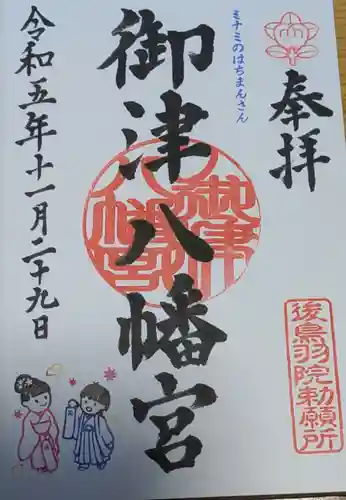 奉拝
ミナミのはちまんさん
御津八幡宮
令和五年十一月二十九日
後鳥羽院勅願所
御津八幡宮